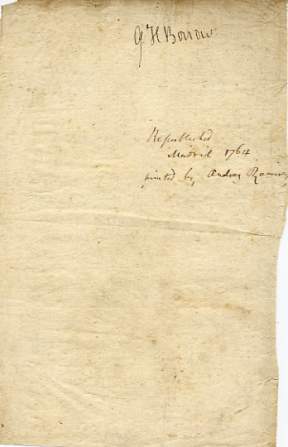 G H Borrow
Republished
Madrid 1764
printed by Andrez Ramirez